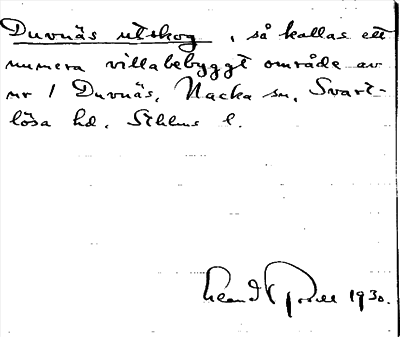 Duvnäs utskog, så kallas ett
numera villabebyggt område av
nr 1 Duvnäs, Nacka sn, Svart-
lösa hd. Sthlms l.
1930.